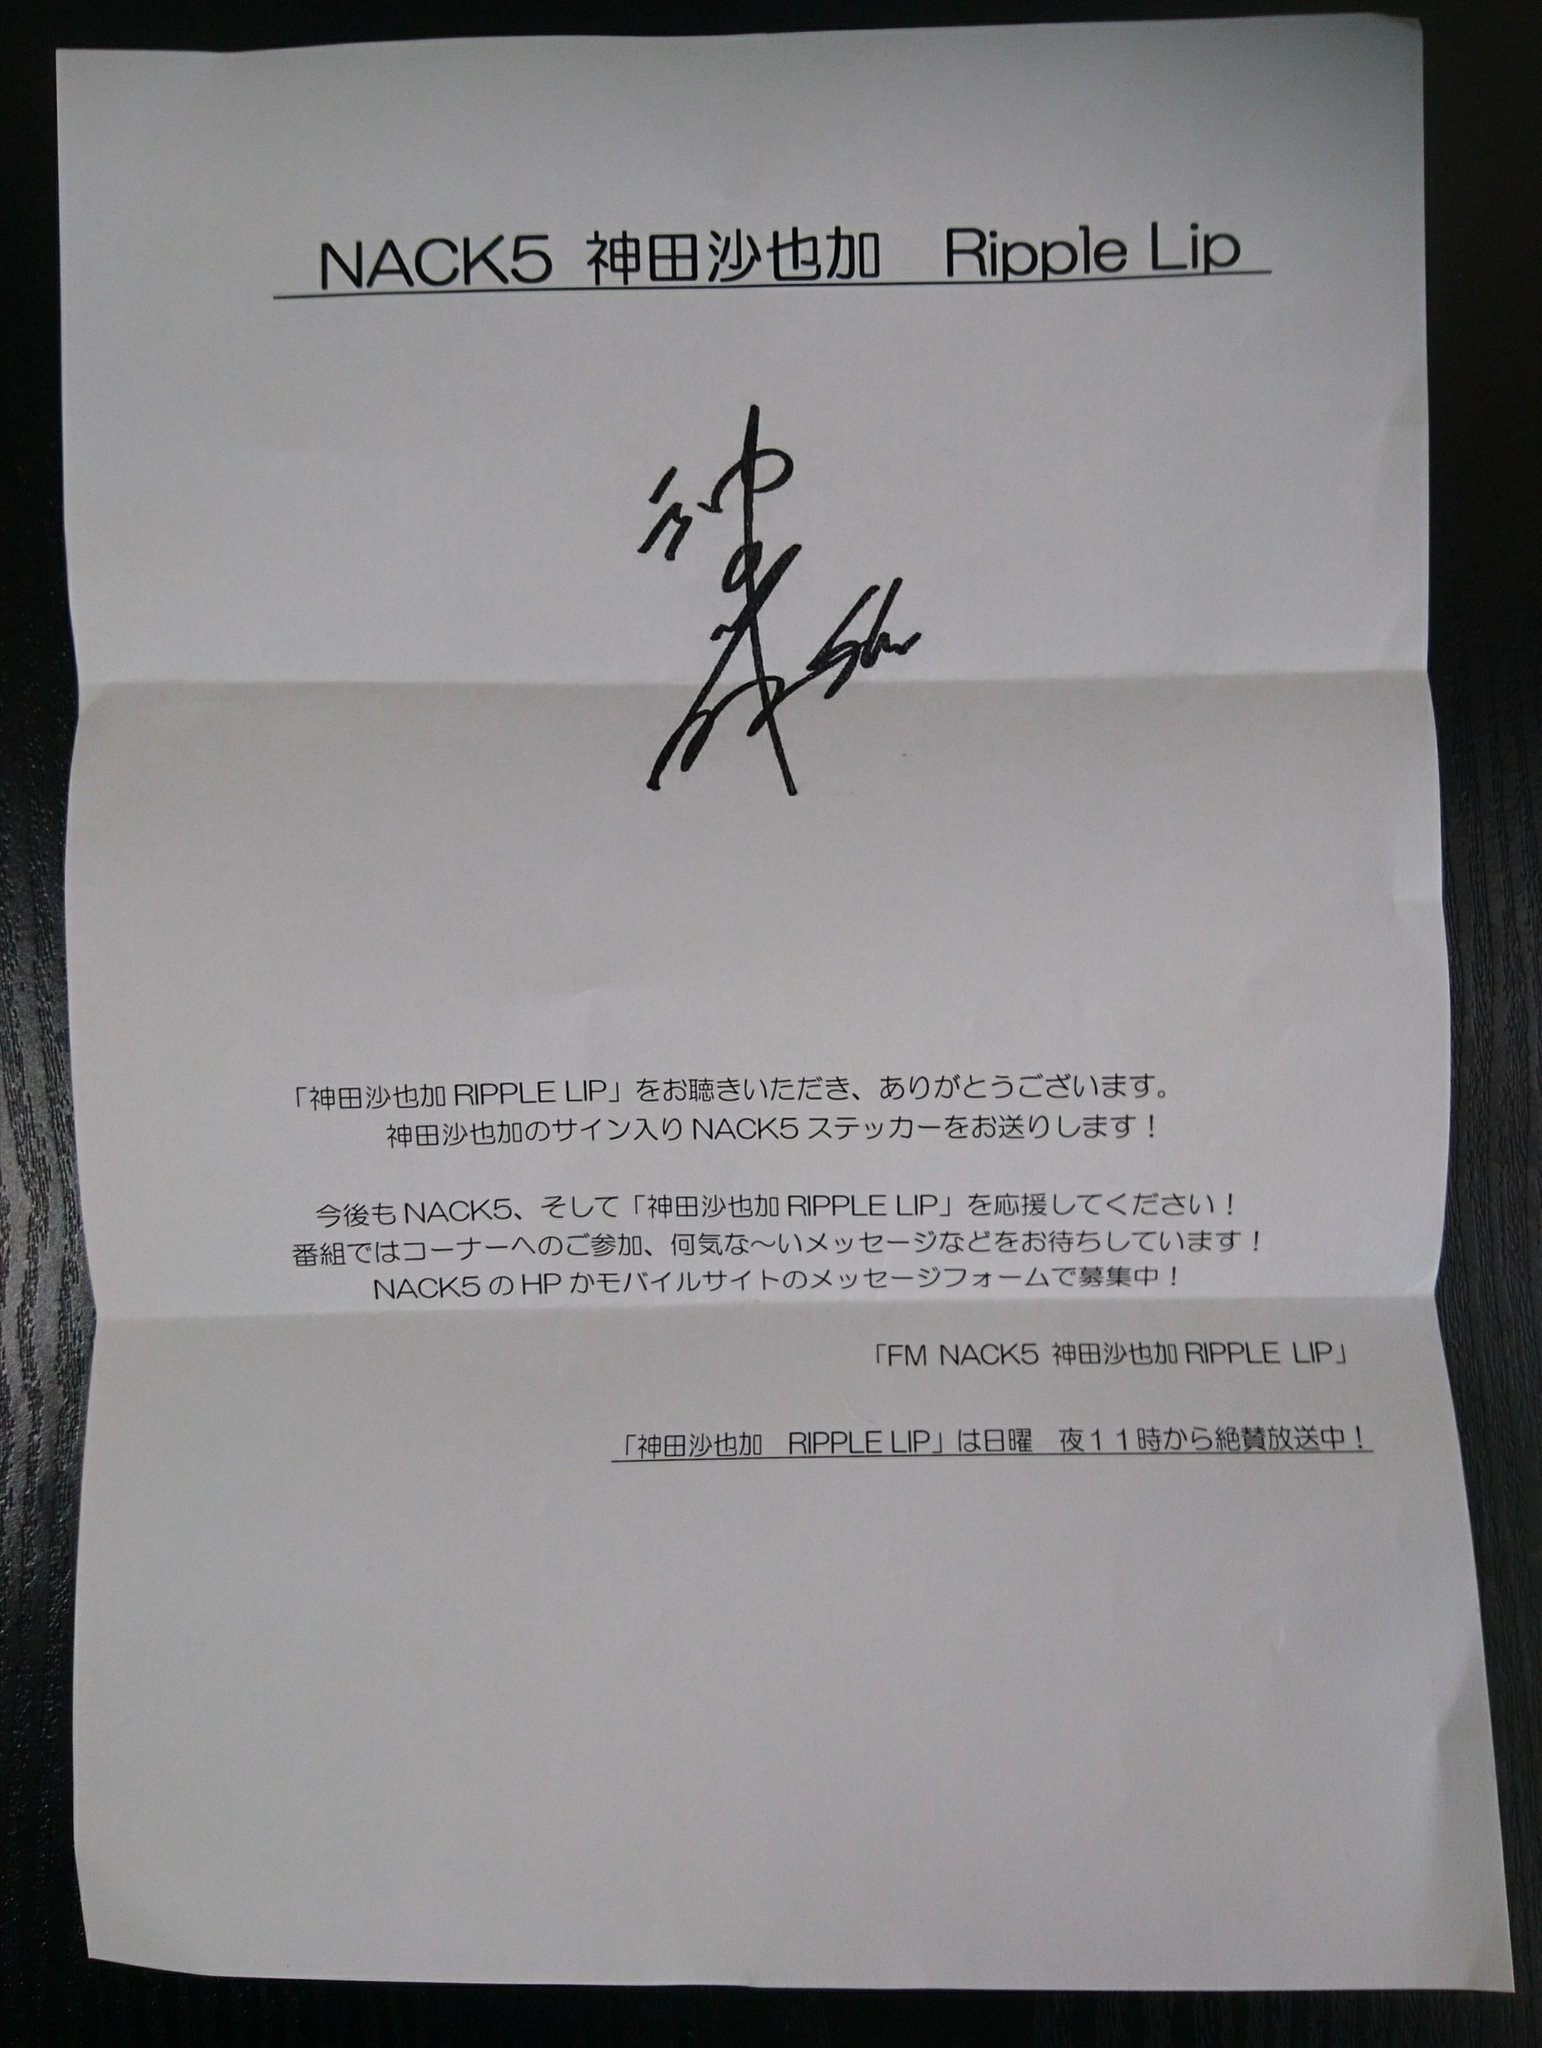 NACK5 神田沙也加　Ripple Lip
「神田沙也加 RIPPLE LIP」をお聴きいただき、ありがとうございます。
神田沙也加のサイン入り NACK5 ステッカーをお送りします！
今後も NACK5、そして「神田沙也加 RIPPLE LIP」を応援してください！
番組ではコーナーへのご参加、何気な～いメッセージなどをお待ちしています！
NACK5 の HP かモバイルサイトのメッセージフォームで募集中！
「FM NACK5 神田沙也加 RIPPLE LIP」
「神田沙也加　RIPPLE LIP」は日曜　夜１１時から絶賛放送中！